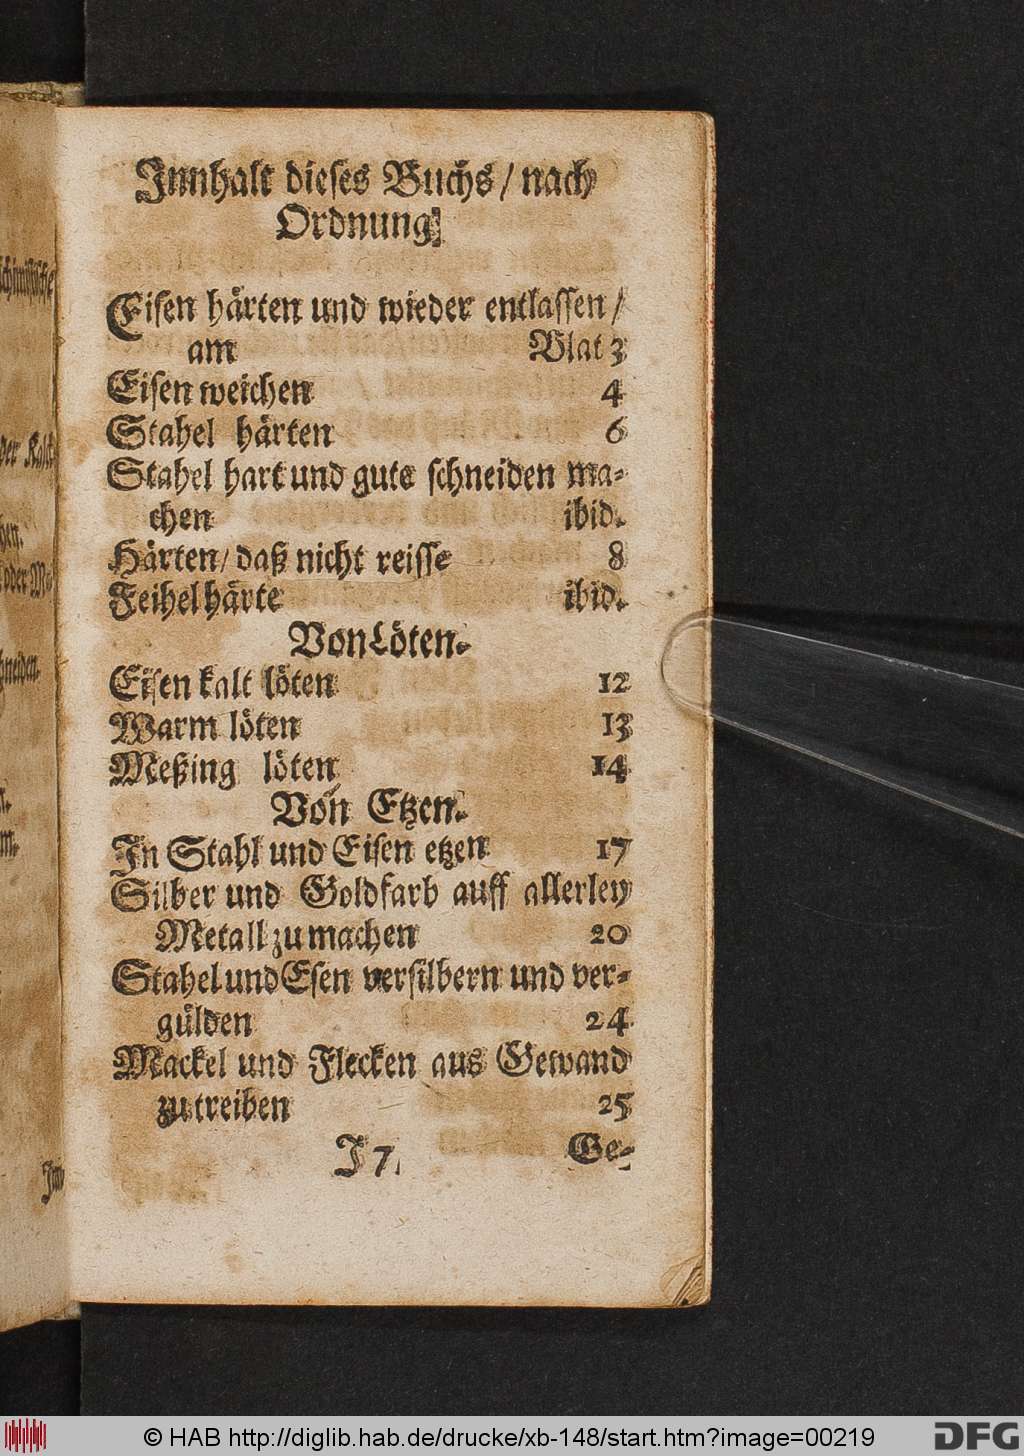 Innhalt dieses Buchs / nach
Ordnung.
Eisen härten und wieder entlassen /
am Blat 3
Eisen weichen 4
Stahel härten 6
Stahel hart und guts schneiden ma-
chen ibid.
Härten / daß nicht reisse 8
Feihel härte ibid.
Von Löten.
Eisen kalt löten 12
Warm löten 13
Meßing löten 14
Von Etzen.
In Stahl und Eisen etzen 17
Silber und Goldfarb auff allerley
Metall zu machen 20
Stahel und Esen versilbern und ver-
gülden 24
Mackel und Flecken aus Gewand
zu treiben 25
J 7. Ge-
© HAB http://diglib.hab.de/drucke/xb-148/start.htm?image=00219
DFG